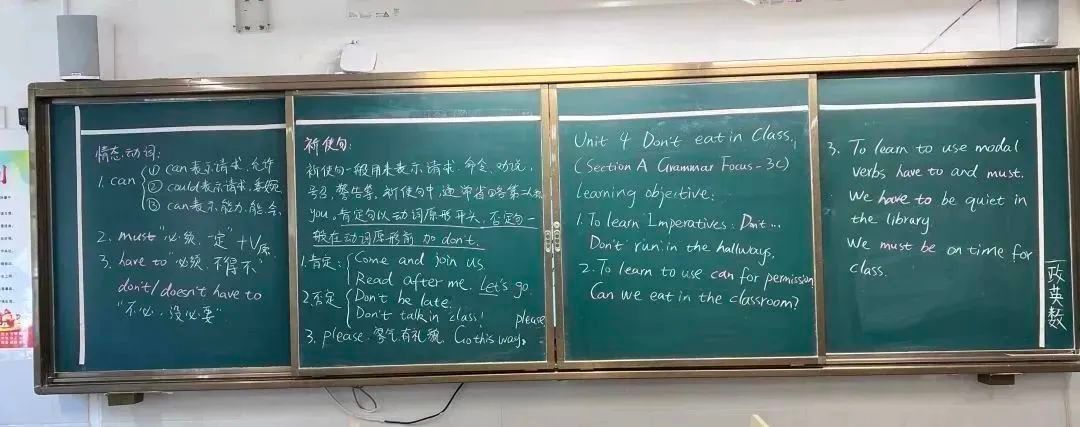 情态动词:
1. can
① can表示请求.允许
② could表示请求.委婉
③ can表示能力.能.会
2. must "必须.一定" +V原
3. have to "必须.不得不"
don't/doesn't have to
"不必.没必要"
祈使句:
祈使句一般用来表示请求.命令.劝说,
号召,警告等,祈使句中,通常省略第二人称
you。肯定句以动词原形开头,否定句一
般在动词原形前 加 don't.
1.肯定:
Come and join us.
Read after me. Let's go.
2.否定
Don't be late.
Don't talk in class!
please
3. please.客气.有礼貌. Go this way,
Unit 4 Don't eat in Class,
(Section A Grammar Focus - 3C)
Learning objective:
1. To learn Imperatives: Don't ...
Don't run in the hallways,
2. To learn to use can for permission
Can we eat in the classroom?
3. To learn to use modal
verbs have to and must.
We have to be quiet in
the library
We must be on time for
class.
政英数